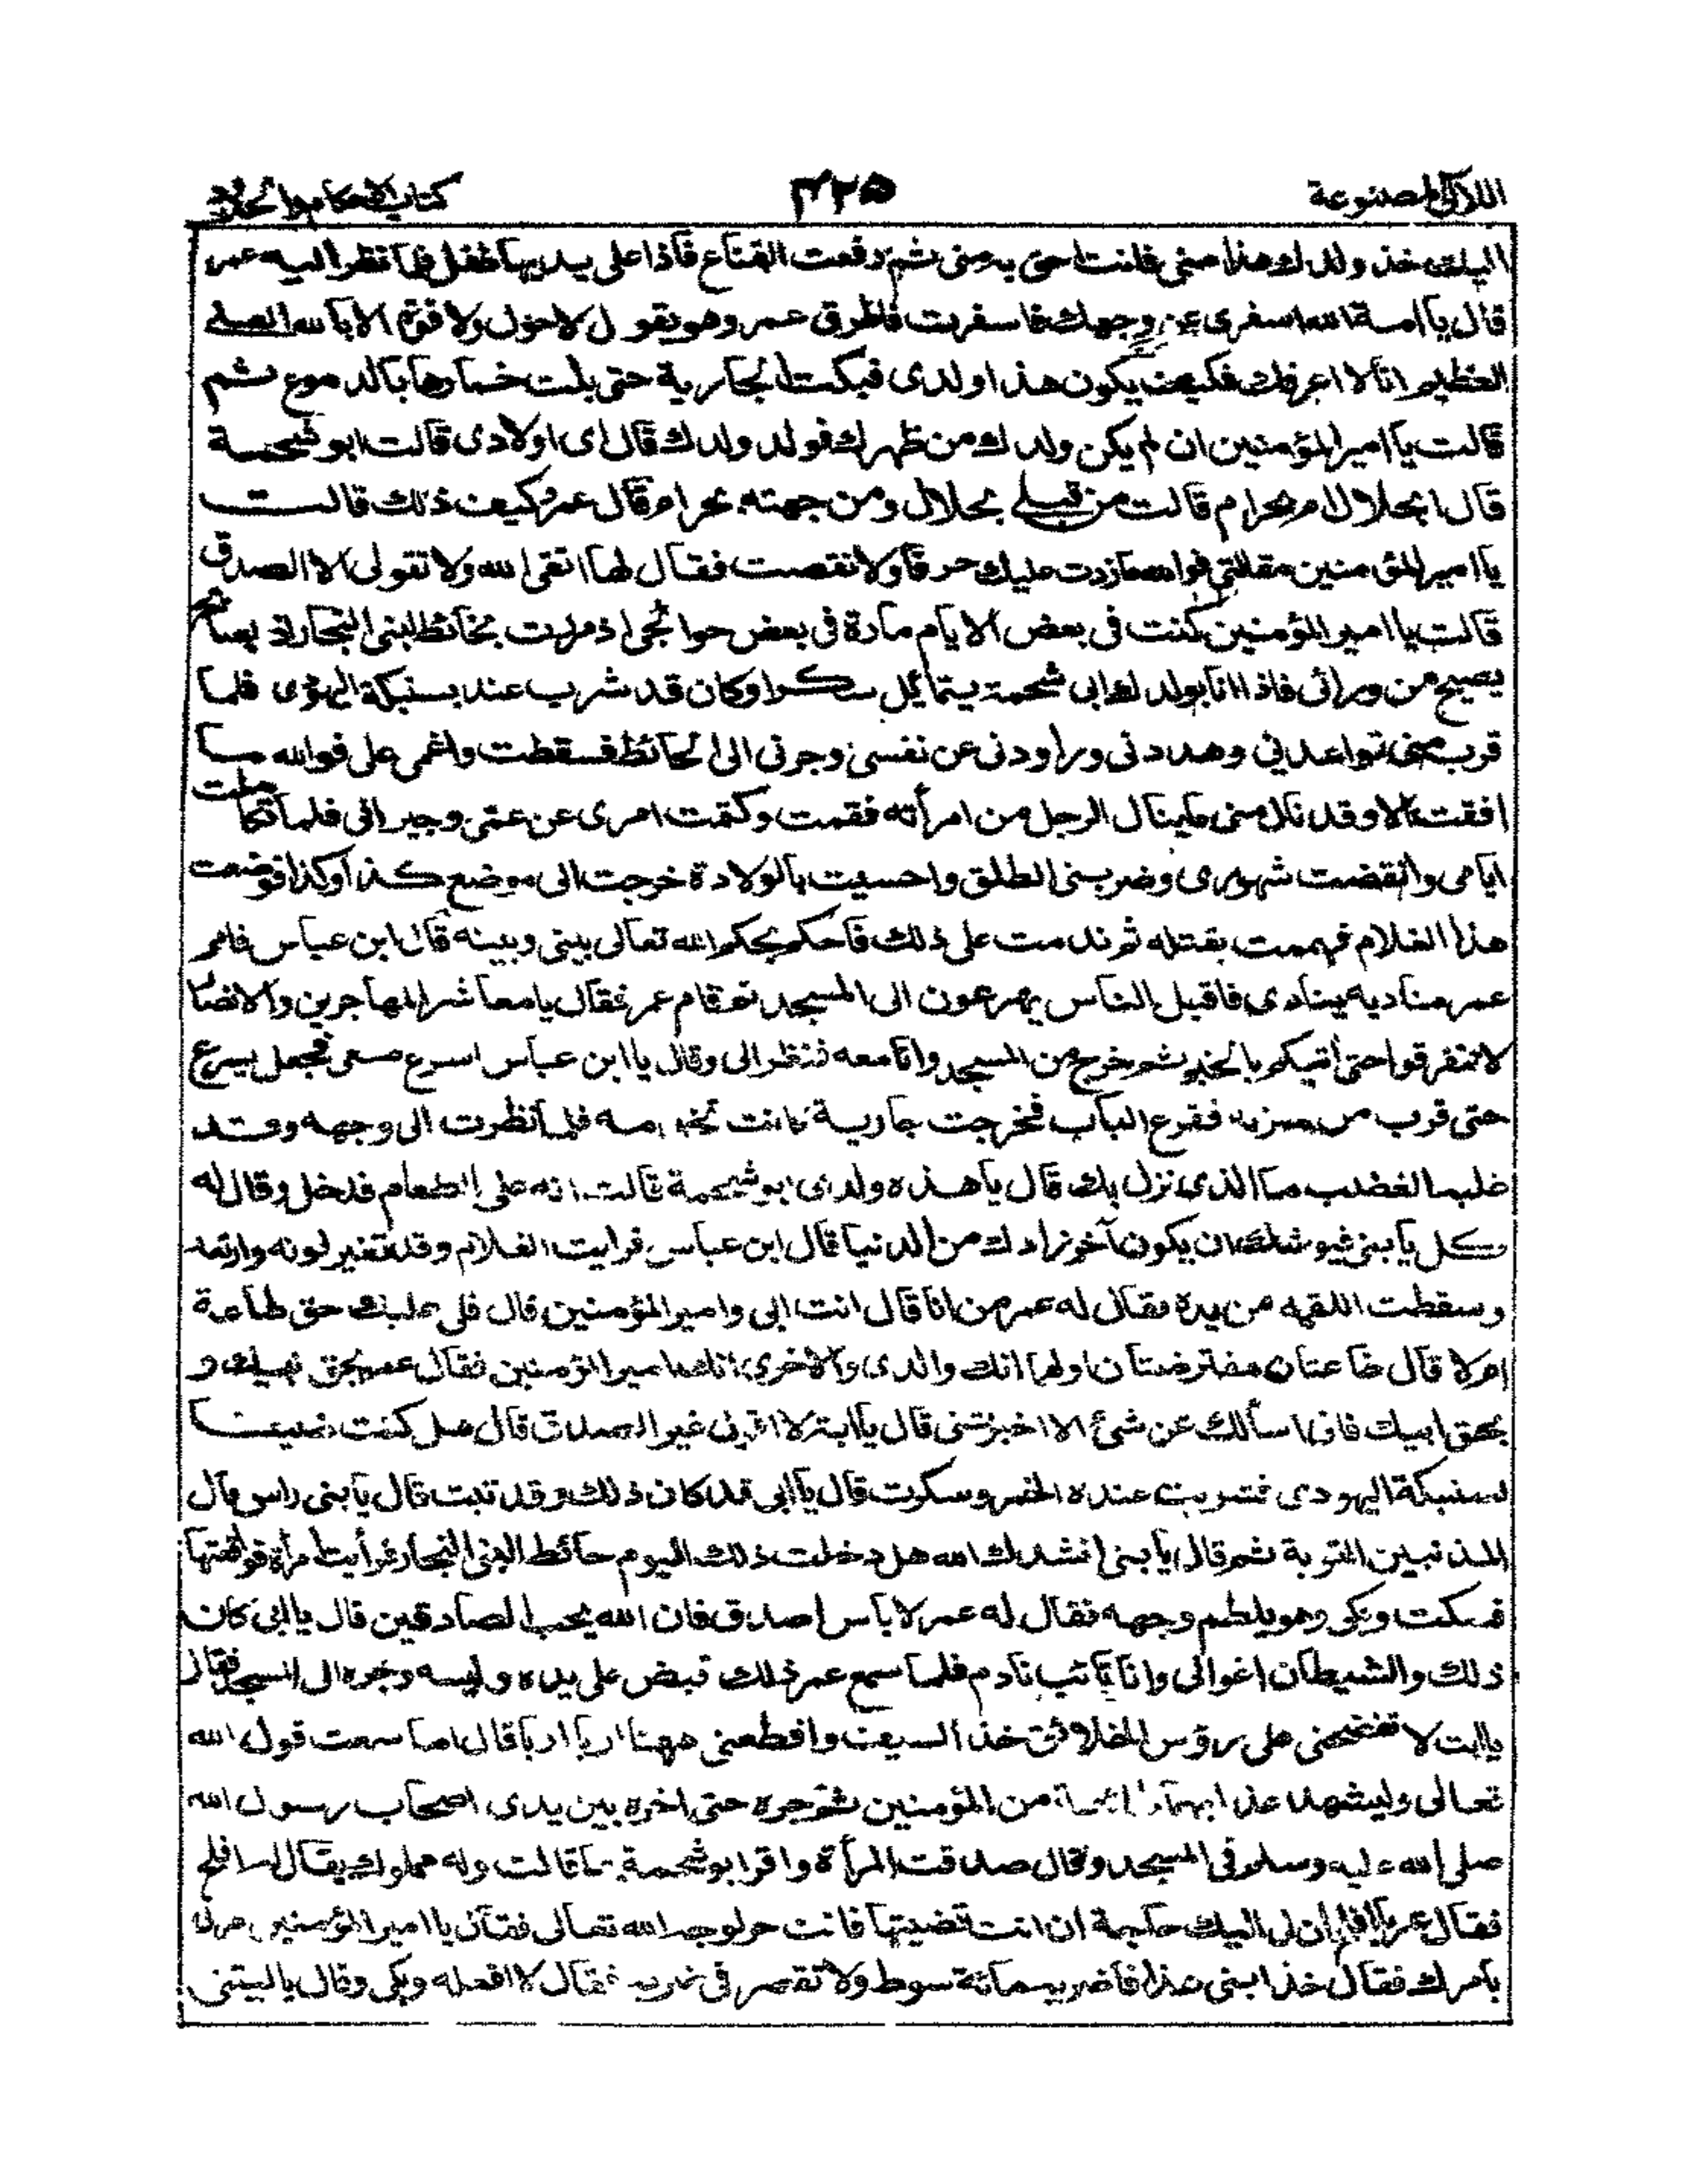 اللآلى المصنوعة ٣٢٥ كتاب الاحكام والحدود
اليك خذ ولدك هذا منى فانت احق به منى ثم رفعت القناع فاذا على يديها طفل فلما نظر اليه عمر
قال يا امة الله اسفرى عن وجهك فاسفرت فاطرق عمر وهو يقول لاحول ولا قوة الا بالله العلى
العظيم انا لا اعرفك فكيف يكون هذا ولدى فبكت الجارية حتى بلت خمارها بالدموع ثم
قالت يا امير المؤمنين ان لم يكن ولدك من ظهرك فهو ولد ولدك قال اى اولادى قالت ابو شحمة
قال ابحلال ام بحرام قالت من قبلى بحلال ومن جهته بحرام قال عمر وكيف ذلك قالت
يا امير المؤمنين مقالتى فوالله مازدت عليك حرفا ولا نقصت فقال لها اتقى الله ولا تقولى الا الصدق
قالت يا امير المؤمنين كنت فى بعض الايام مارة فى بعض حوائجى اذ مررت بحائط لبنى النجار اذ بصائح
يصيح من ورائى فاذا انا بولدك ابى شحمة يتمائل سكرا وكان قد شرب عند بسنبكة اليهودى فلما
قرب منى تواعدنى وهددنى وراودنى عن نفسى وجرنى الى الحائط فسقطت واغمى على فوالله ما
افقت الا وقد نال منى ماينال الرجل من امرأته فقمت وكتمت امرى عن عمى وجيرانى فلما تكاملت
ايامى وانقضت شهورى وضربنى الطلق واحسيت بالولادة خرجت الى موضع كذا وكذا فوضعت
هذا الغلام فهممت بقتله ثم ندمت على ذلك فاحكم بحكم الله تعالى بينى وبينه قال ابن عباس فامر
عمر مناديه ينادى فاقبل الناس يهرعون الى المسجد ثم قام عمر فقال يا معاشر المهاجرين والانصار
لا تتفرقوا حتى أتيكم بالخبر ثم خرج من المسجد وانا معه فنظر الى وقال يا ابن عباس اسرع معى فجعل يسرع
حتى قرب من منزله فقرع الباب فخرجت جارية كانت تخدمه فلما نظرت الى وجهه وقد
غلبه الغضب ما الذى نزل بك قال يا هذه ولدى ابو شحمة قالت انه على الطعام فدخل وقال له
كل يا بنى فيوشك ان يكون آخر زادك من الدنيا قال ابن عباس فرايت الغلام وقد تغير لونه وارتعد
وسقطت اللقمة من يده فقال له عمر من انا قال انت ابى وامير المؤمنين قال فلى عليك حق طاعة
ام لا قال طاعتان مفترضتان اولها انك والدى والاخرى انك امير المؤمنين فقال عمر بحق نبيك و
بحق ابيك فانى اسألك عن شئ الا اخبرتنى قال يا ابة لا اقول غير الصدق قال هل كنت ضيفا
لسنبكة اليهودى فشربت عنده الخمر وسكرت قال يا ابى قد كان ذلك وقد تبت قال يا بنى راس مال
المذنبين التوبة ثم قال يا بنى انشدك الله هل دخلت ذلك اليوم حائط لبنى النجار فرأيت امرأة فواقعتها
فسكت وبكى وهو يلطم وجهه فقال له عمر لا بأس اصدق فان الله يحب الصادقين قال يا ابى كان
ذلك والشيطان اغوانى وانا تائب نادم فلما سمع عمر ذلك قبض على يده ولببه وجره الى المسجد فقال
يا ابت لا تفضحنى على رؤس الخلائق خذ السيف واقطعنى ههنا اربا اربا قال اما سمعت قول الله
تعالى وليشهد عذابهما طائفة من المؤمنين ثم جره حتى اخره بين يدى اصحاب رسول الله
صلى الله عليه وسلم فى المسجد وقال صدقت المرأة واقر ابو شحمة بما قالت وله مملوك يقال له افلح
فقال عمر يا افلح ان لى اليك حاجة ان انت قضيتها فانت حر لوجه الله تعالى فقال يا امير المؤمنين مرنى
بامرك فقال خذ ابنى هذا فاضربه مائة سوط ولا تقصر فى ضربه فقال لا افعله وبكى وقال يا ليتنى